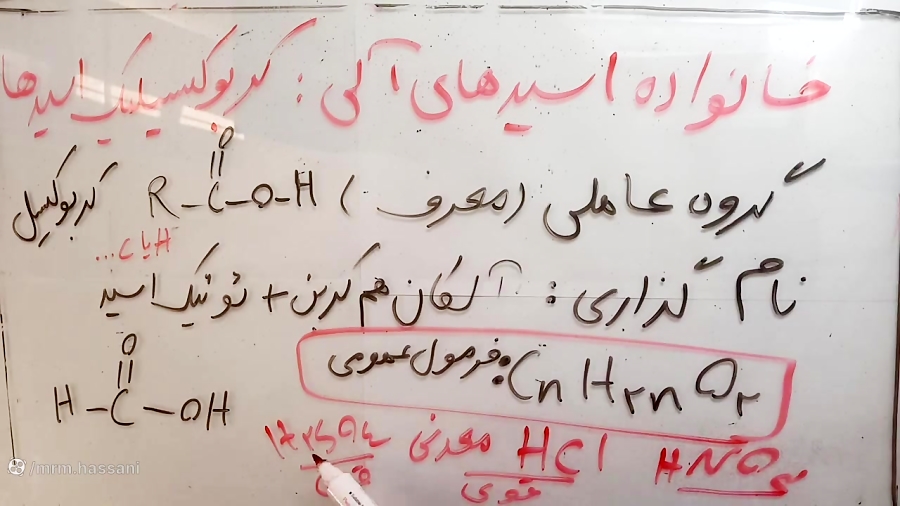 خانواده اسیدهای آلی: کربوکسیلیک اسیدها
گروه عاملی (معرف) R-C-O-H کربوکسیل
O
H یا C...
نام گذاری: آلکان هم کربن + وئیک اسید
فرمول عمومی: CnH۲nO۲
O
H-C-OH
HNO۳ HCl معدنی H۲SO۴
قوی قوی
/mrm.hassani